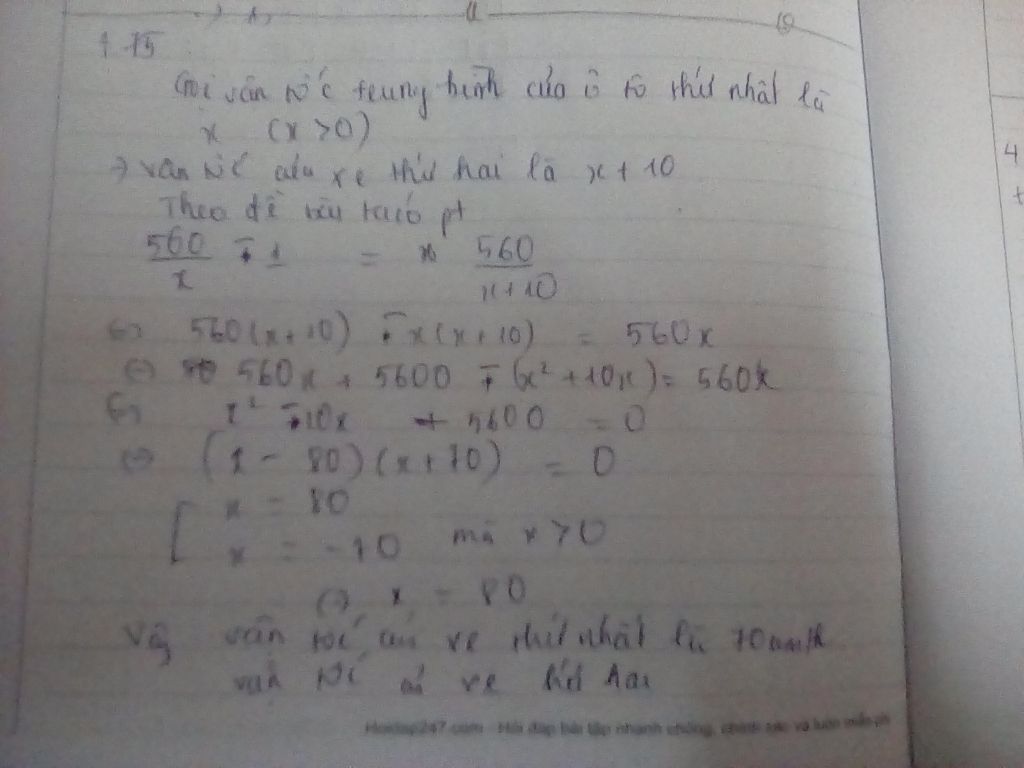 1.15
Gọi vận tốc trung bình của ô tô thứ nhất là
x (x > 0)
=> vận tốc của xe thứ hai là x + 10
Theo đề bài ta có pt
560/x - 1 = 560/(x+10)
<=> 560(x+10) - x(x+10) = 560x
<=> 560x + 5600 - (x² + 10x) = 560x
<=> x² - 10x + 5600 = 0
<=> (x - 80)(x + 70) = 0
[ x = 80
x = -70 mà x > 0
<=> x = 80
Vậy vận tốc của xe thứ nhất là 70km/h
vận tốc xe thứ hai
Hoidap247.com - Hỏi đáp bài tập nhanh chóng, chính xác và luôn miễn phí
4